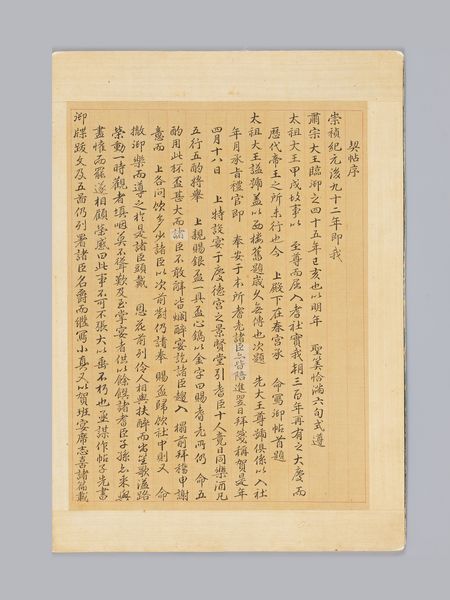 契帖序
崇禎紀元後九十二年即我
肅宗大王臨御之四十五年己亥也以明年 聖筭恰滿六旬式遵
太祖大王甲戌故事以 至尊而屈入耆社實我朝三百年再有之大慶而
歷代帝王之所未行也今 上殿下在春宮承 命寫御帖首題
太祖大王諡號蓋以西樓舊題歲久無傳也次題 先大王尊號俱係以入社
年月 禮官即 奉安于本所耆老諸臣亦皆陪進翌日拜箋稱賀是年
四月十八日 上特設宴于慶德宮之景賢堂引耆臣十人竟日同樂酒凡
五行五酌將擧 上親賜銀盃一具盃心鐫以金字曰賜耆老所仍 命五
酌用此杯盃甚大而諸臣不敢辭皆爛醉宴訖諸臣趨入 榻前拜稽申謝
意而 上各問飮多少諸臣以次前對仍請奉 賜盃歸飮社中則又 命
撤御樂而導之於是諸臣頭戴 恩花前列伶人相與扶醉而出笙歌溢路
榮動一時觀者塡咽莫不聳歎及至掌宴者供以餘餕諸耆臣子孫亦來與
盡懽而罷遂相顧榮感曰此事不可不張大以垂不朽也 謀作帖子先書
御牒跋文及五圖仍列署諸臣名爵而繼寫小眞又以賀班宴席志喜諸篇載